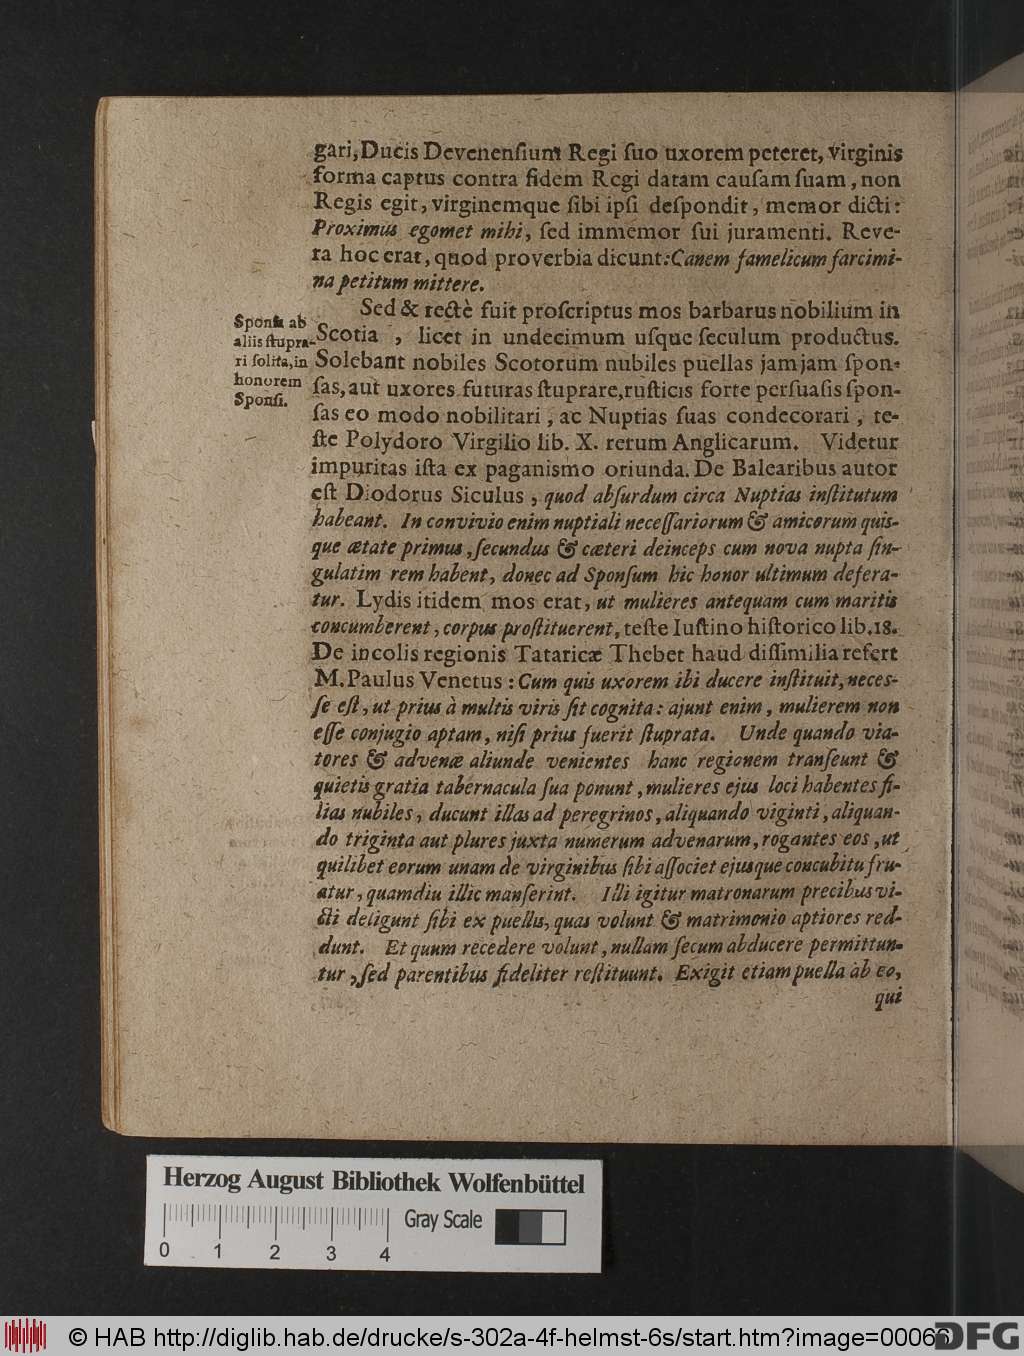 gari, Ducis Devenensium Regi ſuo uxorem peteret, virginis
forma captus contra fidem Regi datam cauſam ſuam, non
Regis egit, virginemque ſibi ipſi deſpondit, memor dicti:
Proximus egomet mihi, ſed immemor ſui juramenti. Reve-
ra hoc erat, quod proverbia dicunt: Canem famelicum farcimi-
na petitum mittere.
Sed & rectè fuit proſcriptus mos barbarus nobilium in
Scotia, licet in undecimum uſque ſeculum productus.
Solebant nobiles Scotorum nubiles puellas jamjam ſpon-
ſas, aut uxores futuras ſtuprare, ruſticis forte perſuaſis ſpon-
ſas eo modo nobilitari, ac Nuptias ſuas condecorari, te-
ſte Polydoro Virgilio lib. X. rerum Anglicarum. Videtur
impuritas iſta ex paganismo oriunda. De Balearibus autor
eſt Diodorus Siculus, quod abſurdum circa Nuptias inſtitutum
habeant. In convivio enim nuptiali neceſſariorum & amicorum quis-
que ætate primus, ſecundus & cæteri deinceps cum nova nupta ſin-
gulatim rem habent, donec ad Sponſum hic honor ultimum defera-
tur. Lydis itidem mos erat, ut mulieres antequam cum maritis
concumberent, corpus proſtituerent, teſte Iuſtino hiſtorico lib. 18.
De incolis regionis Tataricæ Thebet haud diſſimilia refert
M. Paulus Venetus: Cum quis uxorem ibi ducere inſtituit, neces-
ſe eſt, ut prius à multis viris ſit cognita: ajunt enim, mulierem non
eſſe conjugio aptam, niſi prius fuerit ſtuprata. Unde quando via-
tores & advenæ aliunde venientes hanc regionem tranſeunt &
quietis gratia tabernacula ſua ponunt, mulieres ejus loci habentes fi-
lias nubiles, ducunt illas ad peregrinos, aliquando viginti, aliquan-
do triginta aut plures juxta numerum advenarum, rogantes eos, ut
quilibet eorum unam de virginibus ſibi aſſociet ejusque concubitu fru-
atur, quamdiu illic manſerint. Illi igitur matronarum precibus vi-
cti deligunt ſibi ex puellis, quas volunt & matrimonio aptiores red-
dunt. Et quum recedere volunt, nullam ſecum abducere permittun-
tur, ſed parentibus fideliter reſtituunt. Exigit etiam puella ab eo,
qui
Sponſæ ab
aliis ſtupra-
ri ſolita, in
honorem
Sponſi.
Herzog August Bibliothek Wolfenbüttel
0 1 2 3 4
Gray Scale
© HAB http://diglib.hab.de/drucke/s-302a-4f-helmst-6s/start.htm?image=00066
DFG